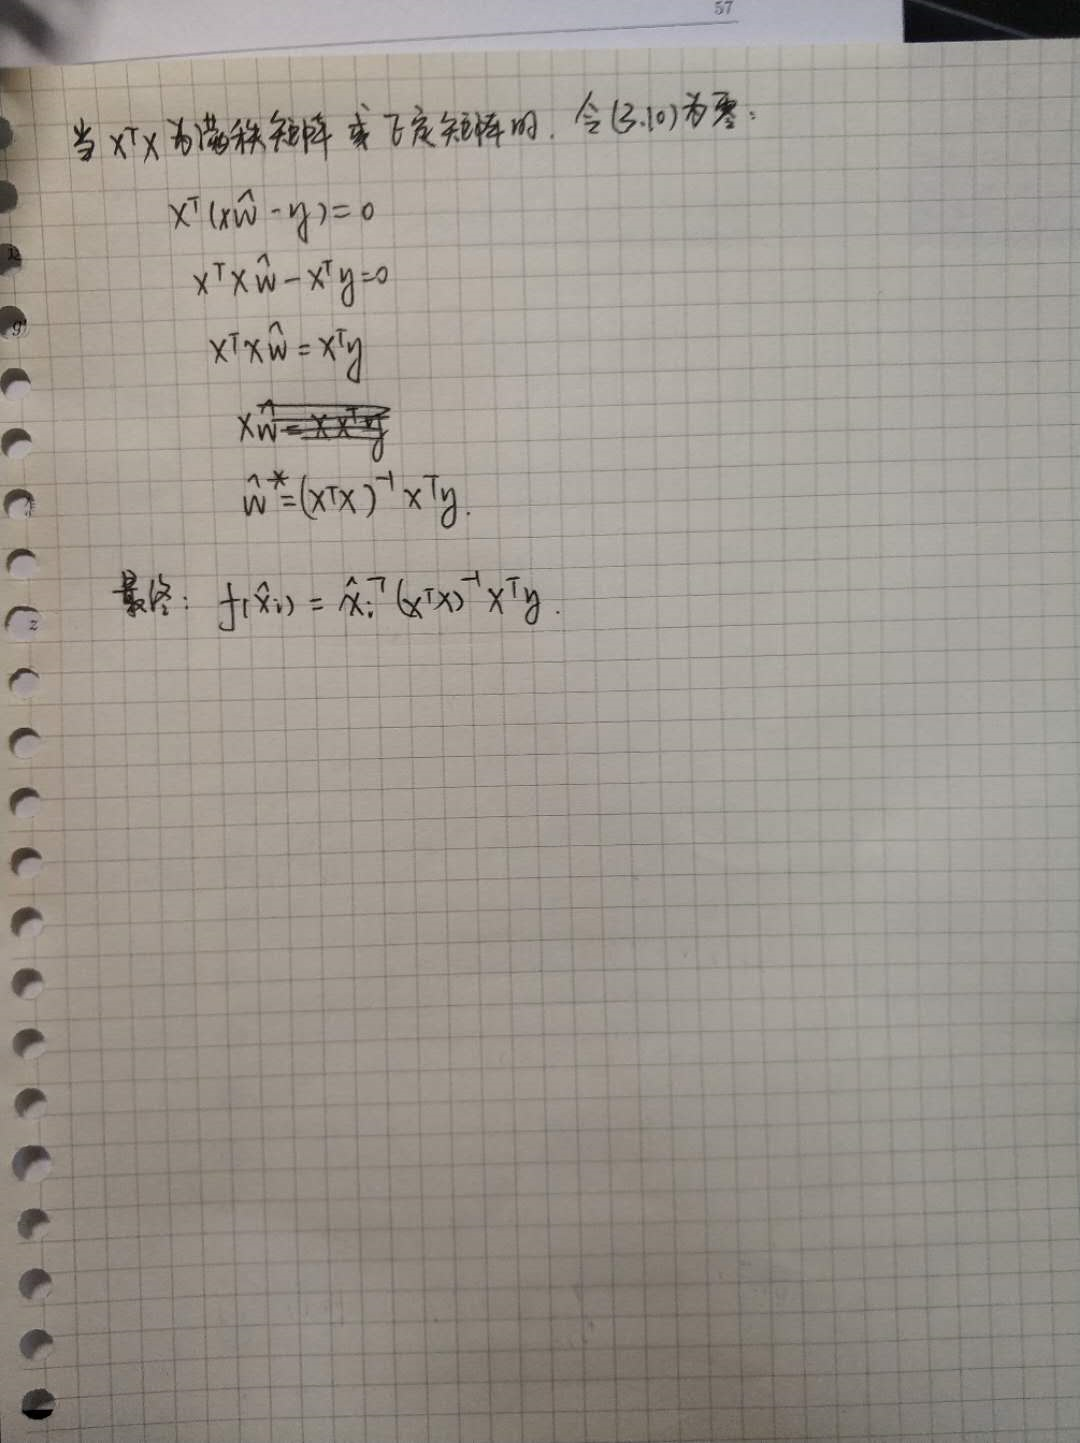 57
当 XᵀX 为满秩矩阵或正定矩阵时. 令(3.10)为零:
Xᵀ(Xŵ-y)=0
XᵀXŵ-Xᵀy=0
XᵀXŵ=Xᵀy
Xŵ=XXᵀy
ŵ*=(XᵀX)⁻¹Xᵀy.
最终: f(x̂ᵢ)=x̂ᵢᵀ(XᵀX)⁻¹Xᵀy.
z